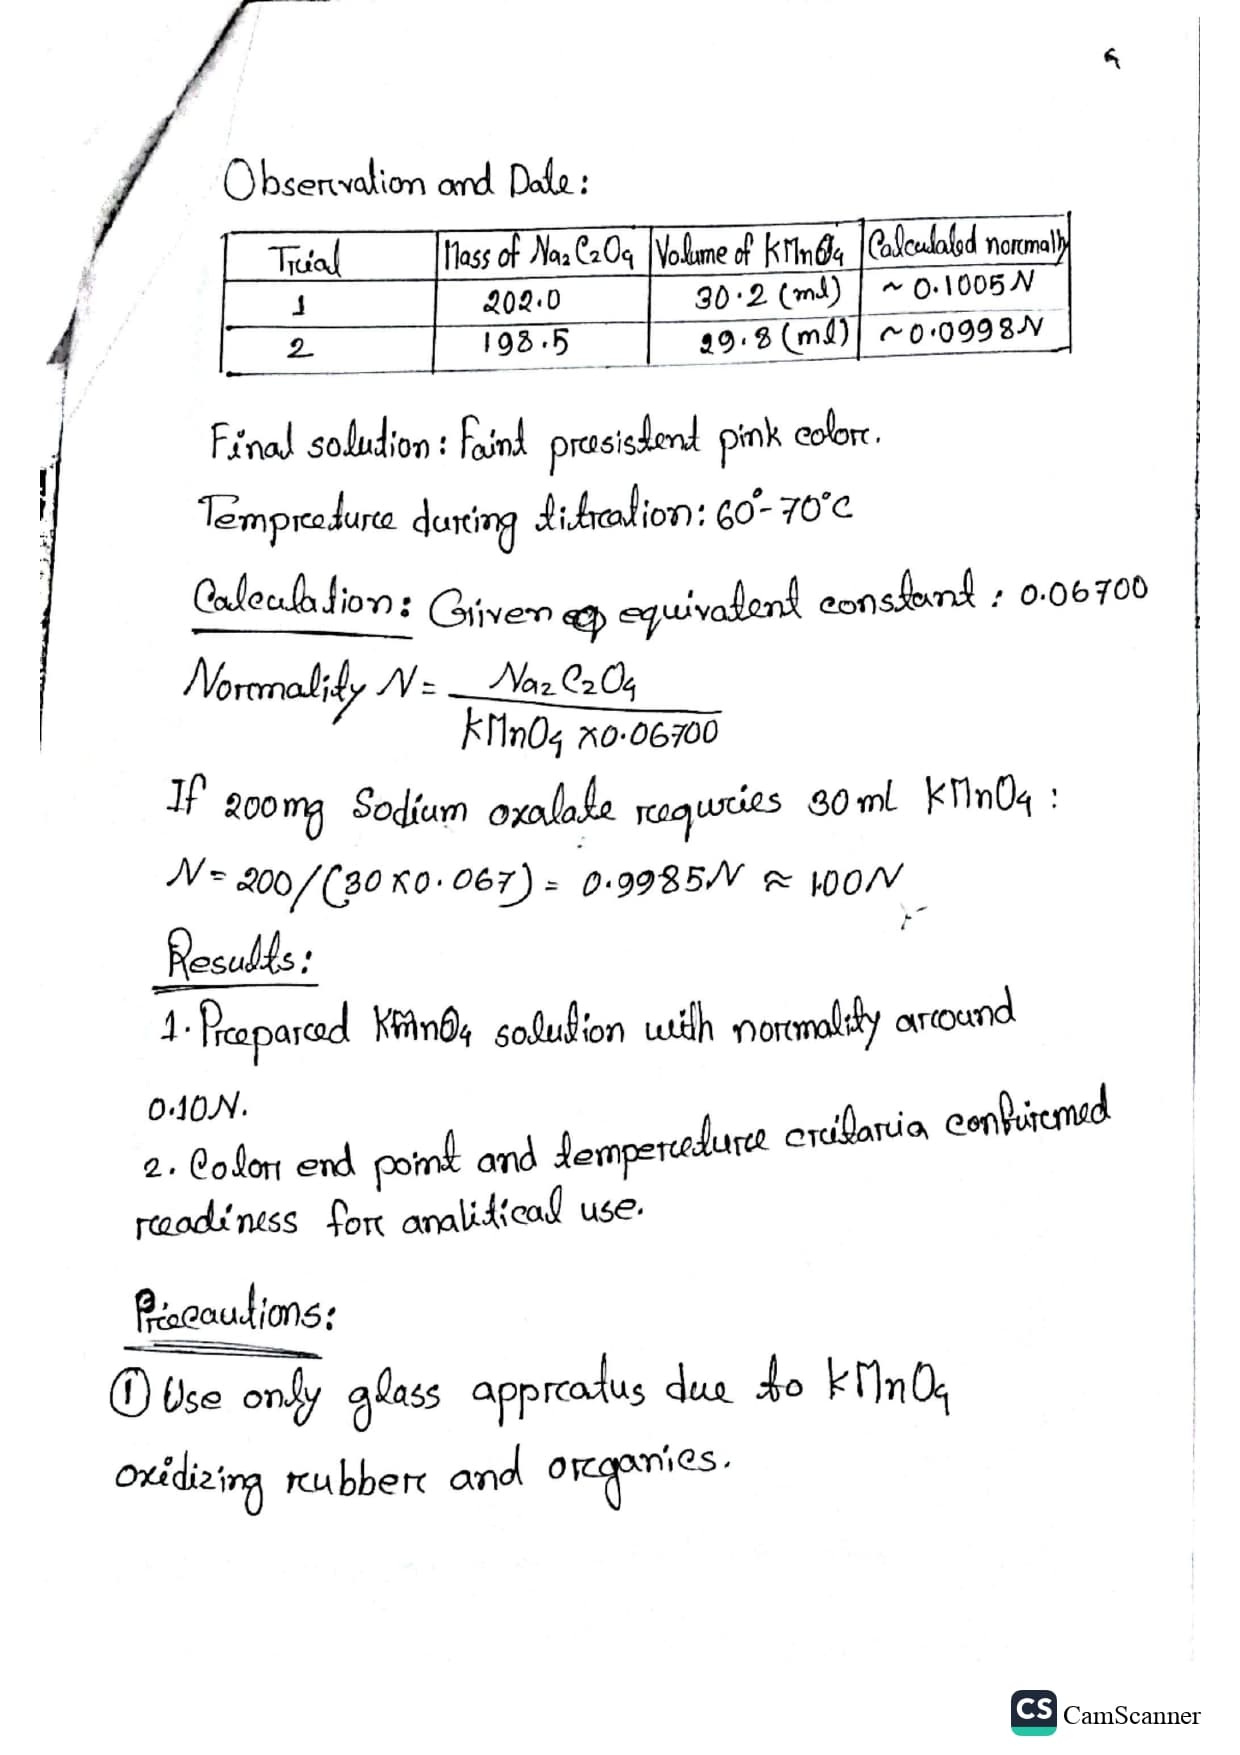 4
Observation and Date:
Trial Mass of Na2C2O4 Volume of KMnO4 Calculated normally
1 202.0 30.2 (ml) ~ 0.1005N
2 198.5 29.8 (ml) ~0.0998N
Final solution: Faint presistent pink color.
Temprerature during titration: 60°-70°C
Calculation: Given equivatent constant : 0.06700
Normality N = Na2C2O4
KMnO4 x0.06700
If 200mg Sodium oxalate requries 30ml KMnO4 :
N = 200/(30x0.067) = 0.9985N ≈ 1.00N
Results:
1. Prepared KMnO4 solution with normality around
0.10N.
2. Color end point and temperedure critaria confirmed
readiness for analitical use.
Precautions:
① Use only glass appratus due to KMnO4
oxidizing rubber and organics.
CS CamScanner